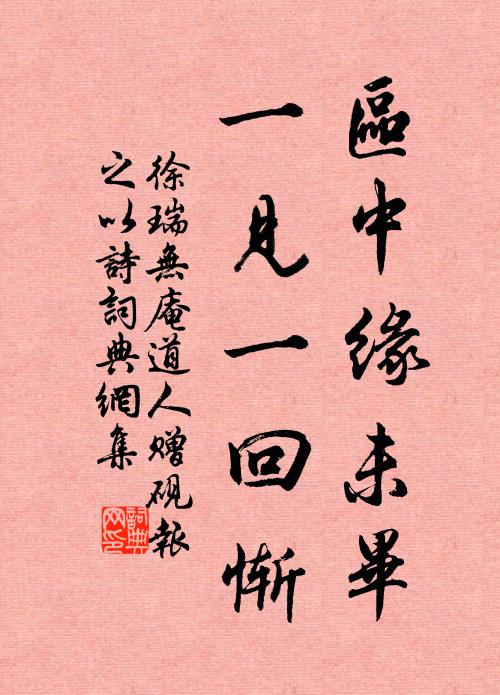 區中緣未畢
一見一回慚
徐瑞無庵道人贈硯報
之以詩詞典網集
詞典
网印